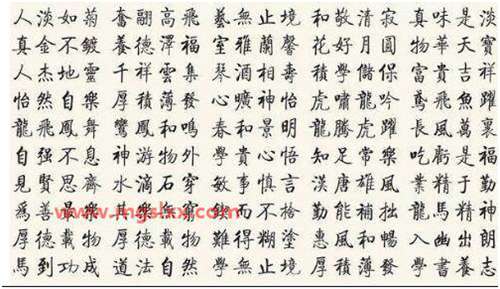 人淡如菊 奮翮高飛 藝無止境 和敬清寂 真味是淡
真金不鍍 養德澤福 室雅蘭馨 花好月圓 物華天寶
人杰地靈 千祥雲集 琴酒相壽 學儲保 富貴吉祥
怡然自樂 厚積薄發 曠神怡 虎嘯龍吟 鳶飛魚躍
龍飛鳳舞 鸞鳳和鳴 春和景明 龍騰虎躍 長風萬裏
自强不息 神游物外 學貴心悟 知足常樂 吃虧是福
見賢思齊 水滴石穿 敏事慎言 漢唐雄風 業精于勤
爲善最樂 其樂 而不 勤能補拙 龍馬精神
厚德載物 厚德載物 難得糊塗 惠風和暢 入幽出朗
馬到功成 道法自然 學無止境 厚積薄發 學書養志